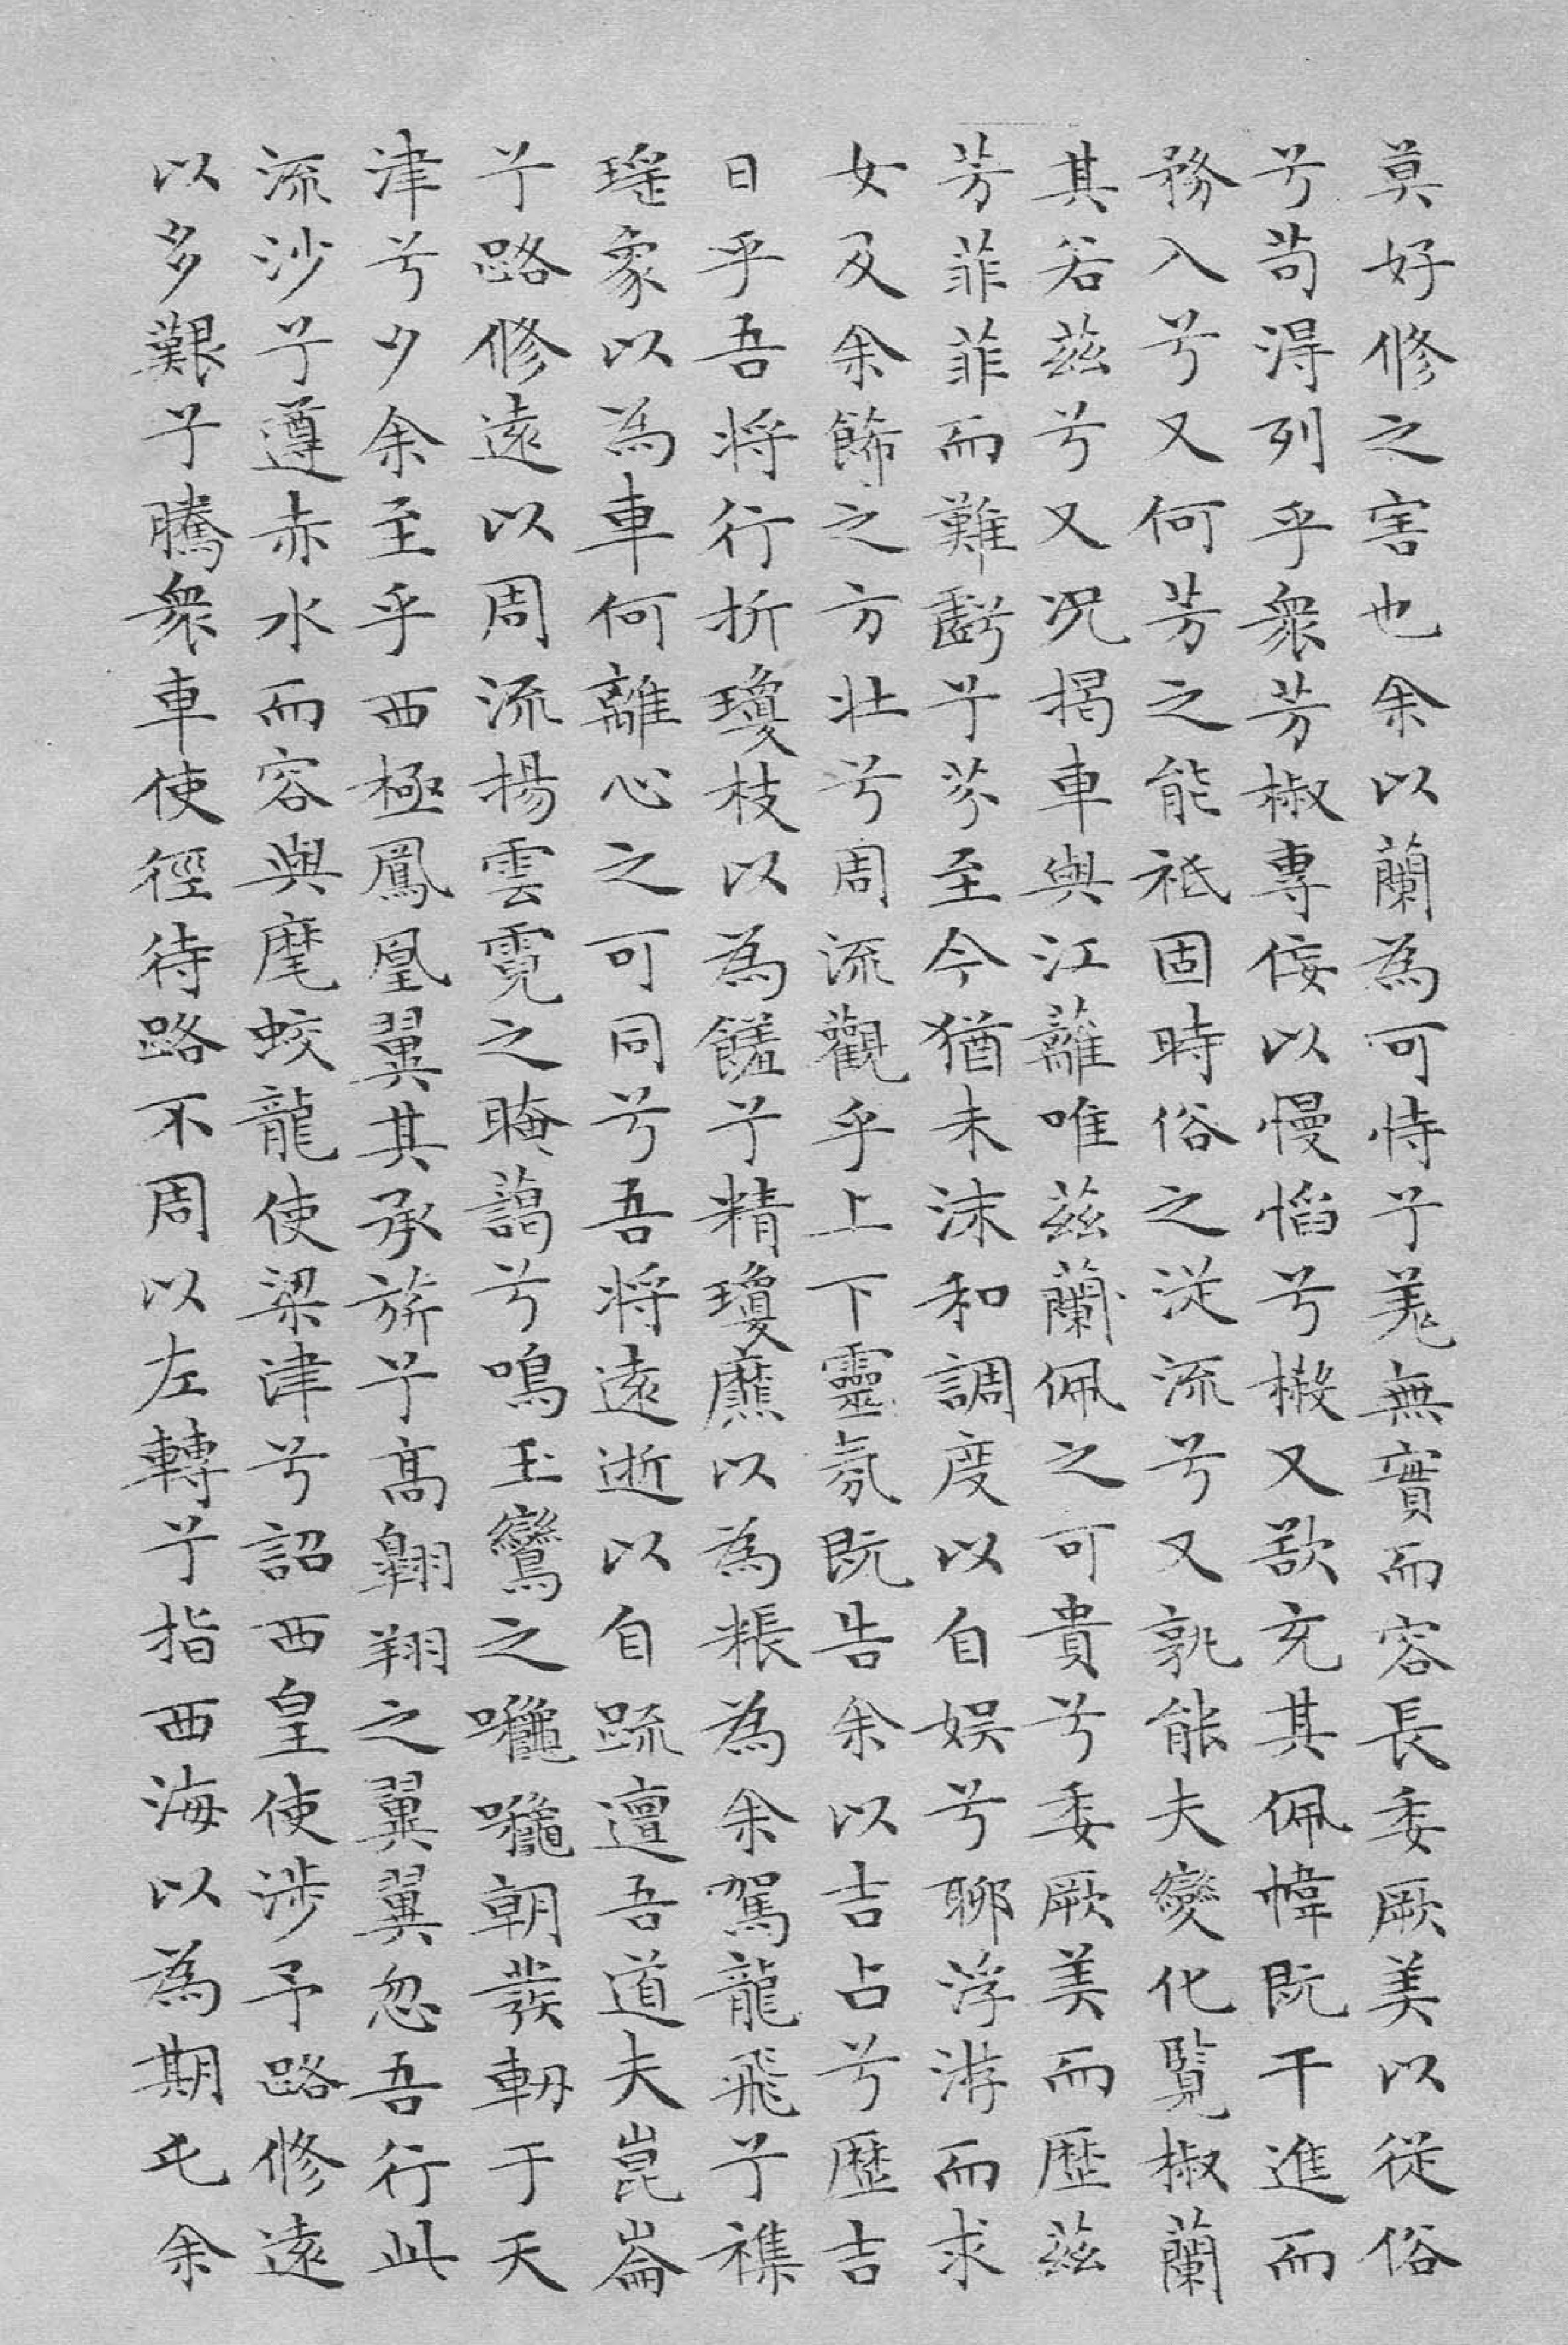 莫好修之害也余以蘭為可恃兮羌無實而容長委厥美以從俗
兮苟得列乎衆芳椒專佞以慢慆兮樧又欲充其佩幃既干進而
務入兮又何芳之能祗固時俗之從流兮又孰能夫變化覽椒蘭
其若茲兮又況揭車與江蘺唯茲蘭佩之可貴兮委厥美而歷茲
芳菲菲而難虧兮芬至今猶未沫和調度以自娛兮聊浮游而求
女及余飾之方壯兮周流觀乎上下靈氛既告余以吉占兮歷吉
日乎吾將行折瓊枝以為饈兮精瓊爢以為粻為余駕龍飛兮襍
瑤象以為車何離心之可同兮吾將遠逝以自疏邅吾道夫崑崙
兮路修遠以周流揚雲霓之晻藹兮鳴玉鸞之嚨嚨朝發軔于天
津兮夕余至乎西極鳳凰翼其承旂兮高翱翔之翼翼忽吾行此
流沙兮遵赤水而容與麾蛟龍使梁津兮詔西皇使涉予路修遠
以多艱兮騰衆車使徑待路不周以左轉兮指西海以為期屯余